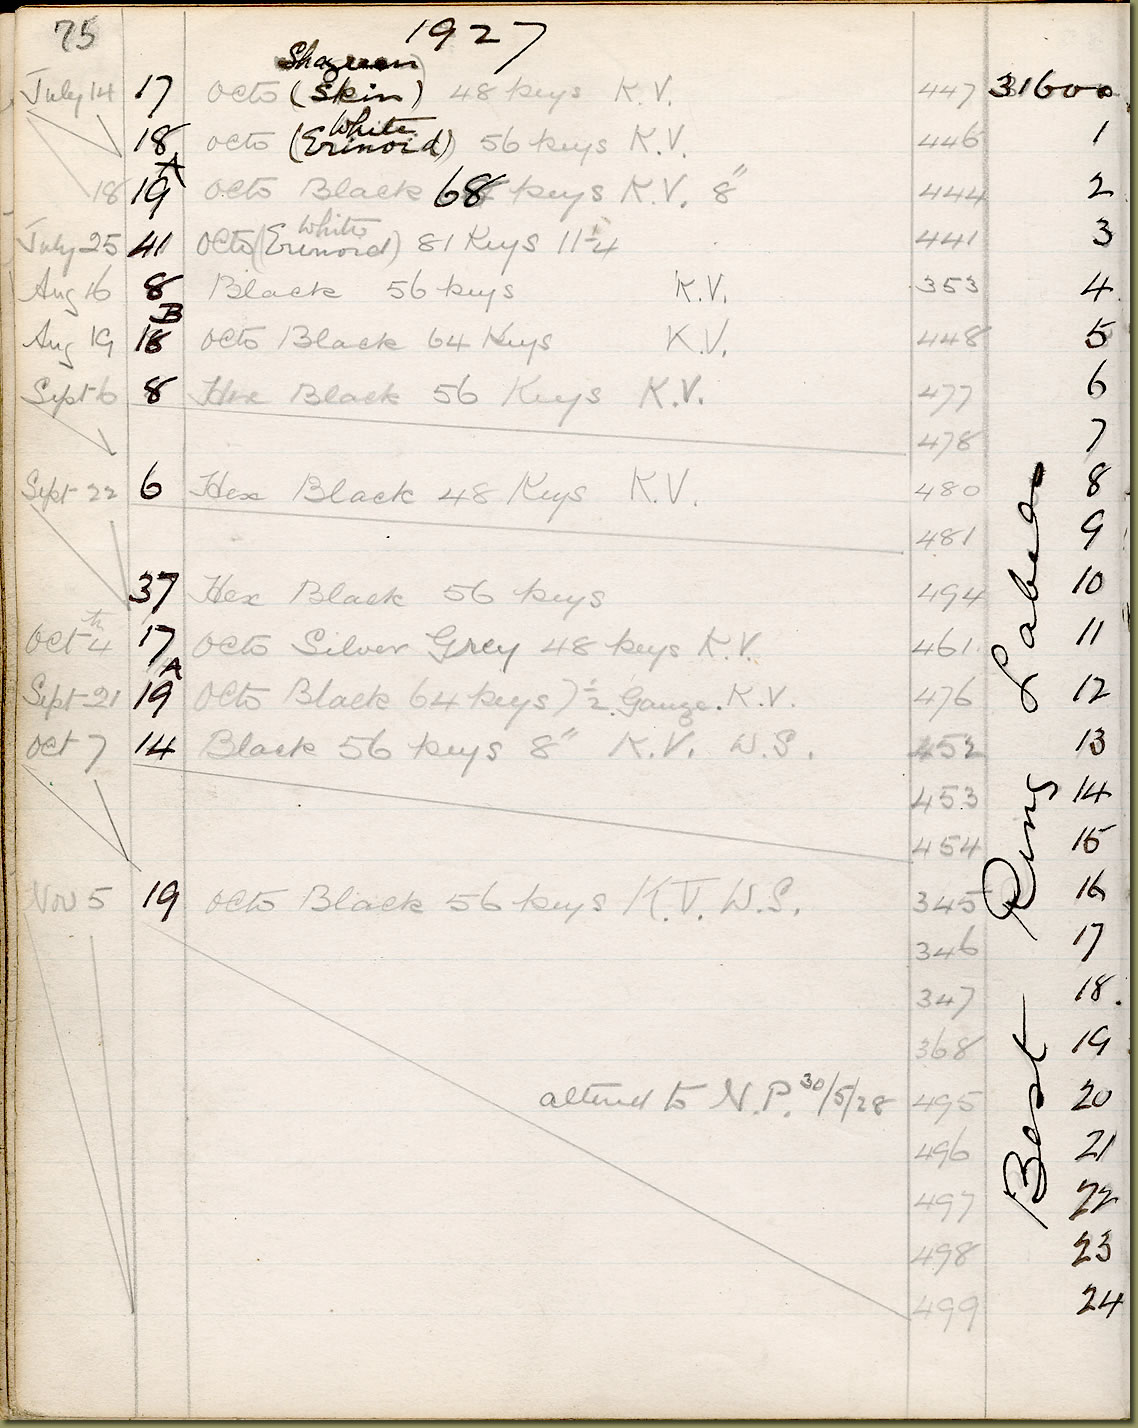 75 1927
Shagreen
July 14 17 Octo (Skin) 48 keys K.V. 447 31600
White
18 Octo (Erinoid) 56 keys K.V. 446 1
A
18 19 Octo Black 68 keys K.V. 8" 444 2
White
July 25 41 Octo (Erinoid) 81 Keys 11 1/4 441 3
Aug 16 8 Black 56 keys K.V. 353 4
B
Aug 19 18 Octo Black 64 Keys K.V. 448 5
Sept 6 8 Hex Black 56 Keys K.V. 477 6
478 7
Sept 22 6 Hex Black 48 Keys K.V. 480 8
481 9
37 Hex Black 56 keys 494 10
Oct 4th 17 Octo Silver Grey 48 keys K.V. 461 11
A
Sept 21 19 Octo Black 64 keys 7 1/2 Gauge. K.V. 476 12
Oct 7 14 Black 56 keys 8" K.V. W.S. 452 13
453 14
454 15
Nov 5 19 Octo Black 56 keys K.V. W.S. 345 16
346 17
347 18.
368 19
altered to N.P. 30/5/28 495 20
496 21
497 22
498 23
499 24
Best Ring Labels